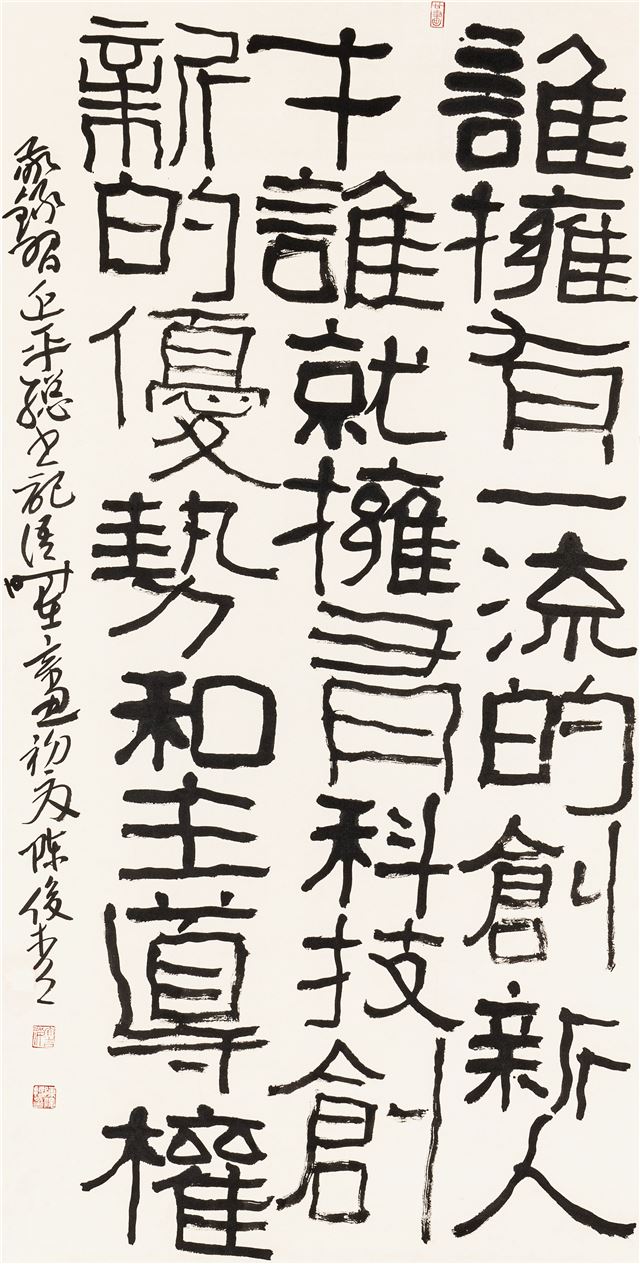 誰擁有一流的創新人
才誰就擁有科技創
新的優勢和主導權
敬錄習近平總书記語時在辛丑初夏陳俊